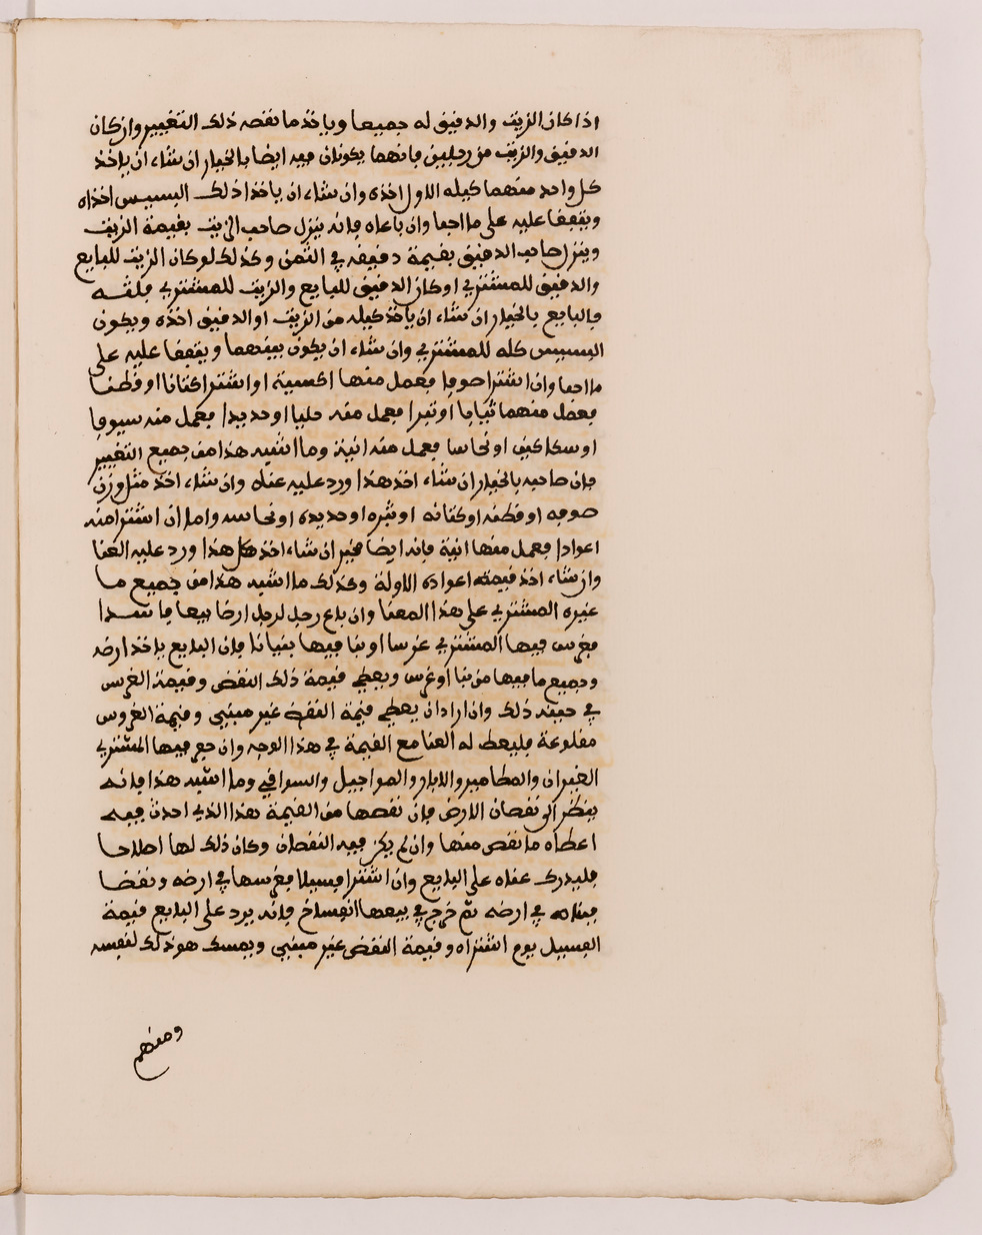 اذا كان الزيت والدقيق له جميعا وياخذ ما نقصه ذلك التغيير وان كان
الدقيق والزيت من رجلين فانهما يكونان فيه ايضا بالخيار ان شاء ان ياخذ
كل واحد منهما كيله الاول اخذه وان شاء ان ياخذا ذلك البسيس اخذاه
ويتفقا عليه على ما احبا وان باعاه فانه ينزل صاحب الزيت بقيمة الزيت
وينزل صاحب الدقيق بقيمة دقيقه في الثمن وكذلك لو كان الزيت للبايع
والدقيق للمشتري او كان الدقيق للبايع والزيت للمشتري فلته
فالبايع بالخيار ان شاء ان ياخذ كيله من الزيت او الدقيق اخذه ويكون
البسيس كله للمشتري وان شاء ان يكون بينهما ويتفقا عليه على
ما احبا وان اشترا صوفا فعمل منها اكسية او اشترا كتانا او قطنا
فعمل منهما ثيابا او تبرا فعمل منه حليا او حديدا فعمل منه سيوفا
او سكاكين او نحاسا فعمل منه انية وما اشبه هذا من جميع التغيير
فان صاحبه بالخيار ان شاء اخذ هذا ورد عليه عناه وان شاء اخذ مثل وزن
صوفه او قطنه او كتانه او تبره او حديده او نحاسه واما ان اشترا منه
اعوادا فعمل منها انية فانه ايضا مخير ان شاء اخذ كل هذا ورد عليه العنا
وان شاء اخذ قيمته اعواده الاولة وكذلك ما اشبه هذا من جميع ما
غيره المشتري على هذا المعنا وان باع رجل لرجل ارضا بيعا فاسدا
فغرس فيها المشتري غرسا او بنا فيها بنيانا فان البايع ياخذ ارضه
وجميع ما فيها من بنا او غرس ويعطي قيمة ذلك النقض وقيمة الغرس
في حينه ذلك وان اراد ان يعطي قيمة النقض غير مبني وقيمة الغروس
مقلوعة فليعط له العنا مع القيمة في هذا الوجه وان حفر فيها المشتري
الغيران والمطامير والابار والمواجيل والسواقي وما اشبه هذا فانه
ينظر الى نقصان الارض فان نقصها من القيمة هذا الذي احدث فيه
اعطاه ما نقص منها وان لم يكن فيه النقصان وكان ذلك لها اصلاحا
فليدرك عناه على البايع وان اشترا فسيلا فغرسها في ارضه ونقضا
فبناه في ارضه ثم خرج في بيعها انفساخ فانه يرد على البايع قيمة
الفسيل يوم اشتراه وقيمة النقض غير مبني ويمسك هو ذلك لنفسه
ومنهم